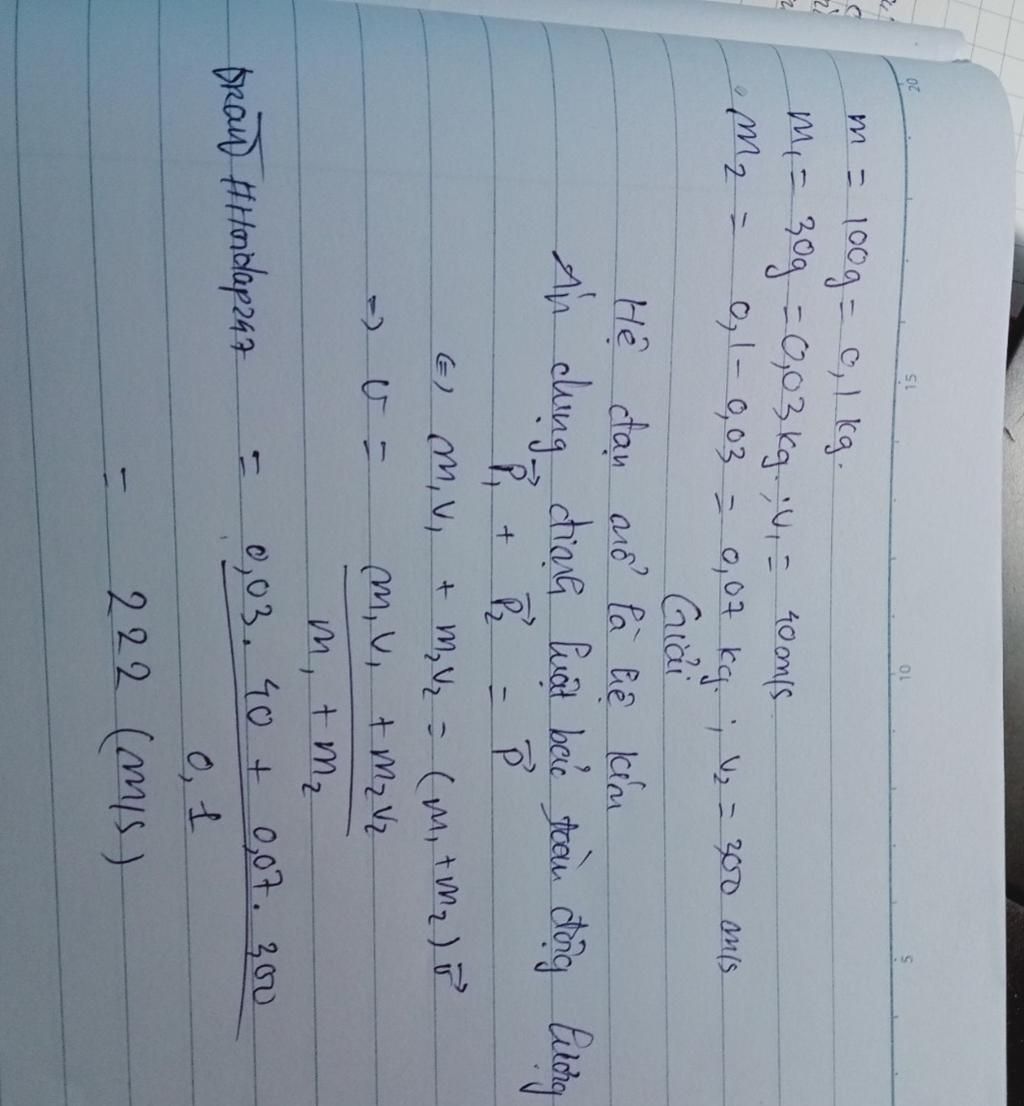 m = 100g = 0,1 kg.
m₁ = 30g = 0,03 kg ; v₁ = 40 m/s
m₂ = 0,1 - 0,03 = 0,07 kg ; v₂ = 300 m/s
Giải
Hệ đạn nổ là hệ kín
Áp dụng định luật bảo toàn động lượng
p₁⃗ + p₂⃗ = p⃗
⇔ m₁v₁ + m₂v₂ = (m₁ + m₂) v⃗
⇒ v = (m₁v₁ + m₂v₂) / (m₁ + m₂)
= (0,03. 40 + 0,07. 300) / 0,1
= 222 (m/s)
20
15
10
5